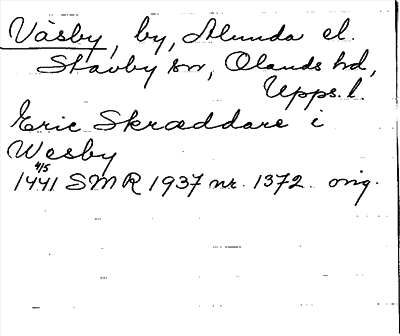 Väsby, by, Alunda el.
Stavby sn, Olands hd,
Upps. l.
Eric Skræddare i
Wesby
4/5
1441 SMR 1937 nr. 1372. orig.